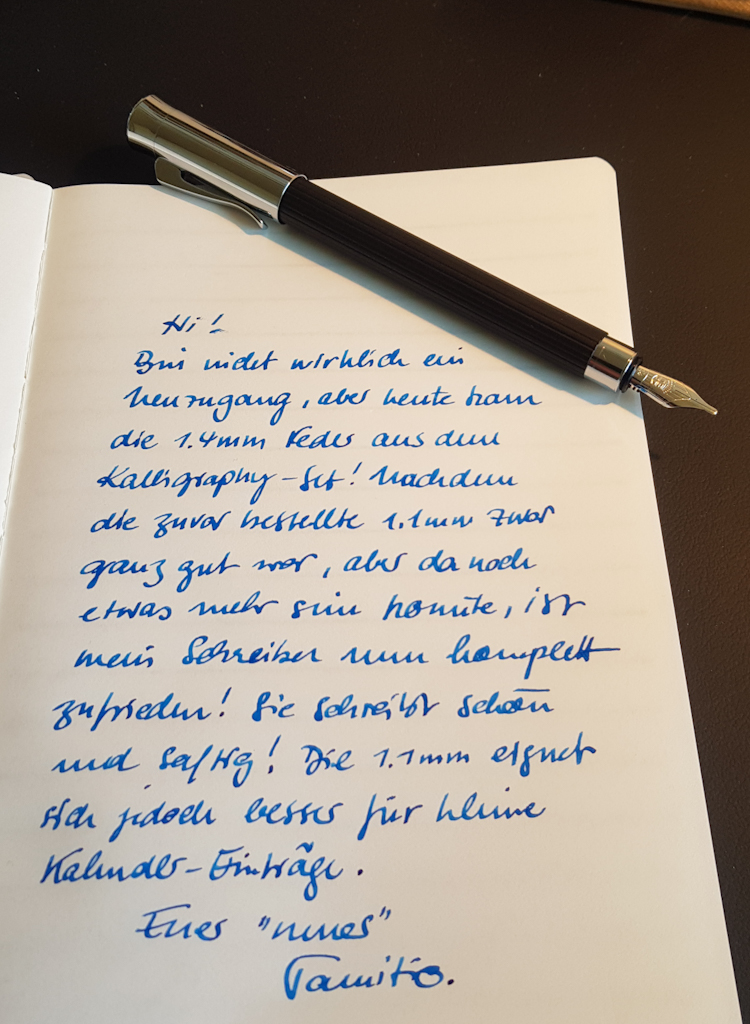 Hi!
Bin nicht wirklich ein
Neuzugang, aber heute kam
die 1.4mm Feder aus dem
Kalligraphy-Set! Nachdem
die zuvor bestellte 1.1mm zwar
ganz gut war, aber da noch
etwas mehr sein konnte, ist
mein Schreiber nun komplett
zufrieden! Sie schreibt schön
und saftig! Die 1.1mm eignet
sich jedoch besser für kleine
Kalender-Einträge.
Euer "neues"
Tamitio.